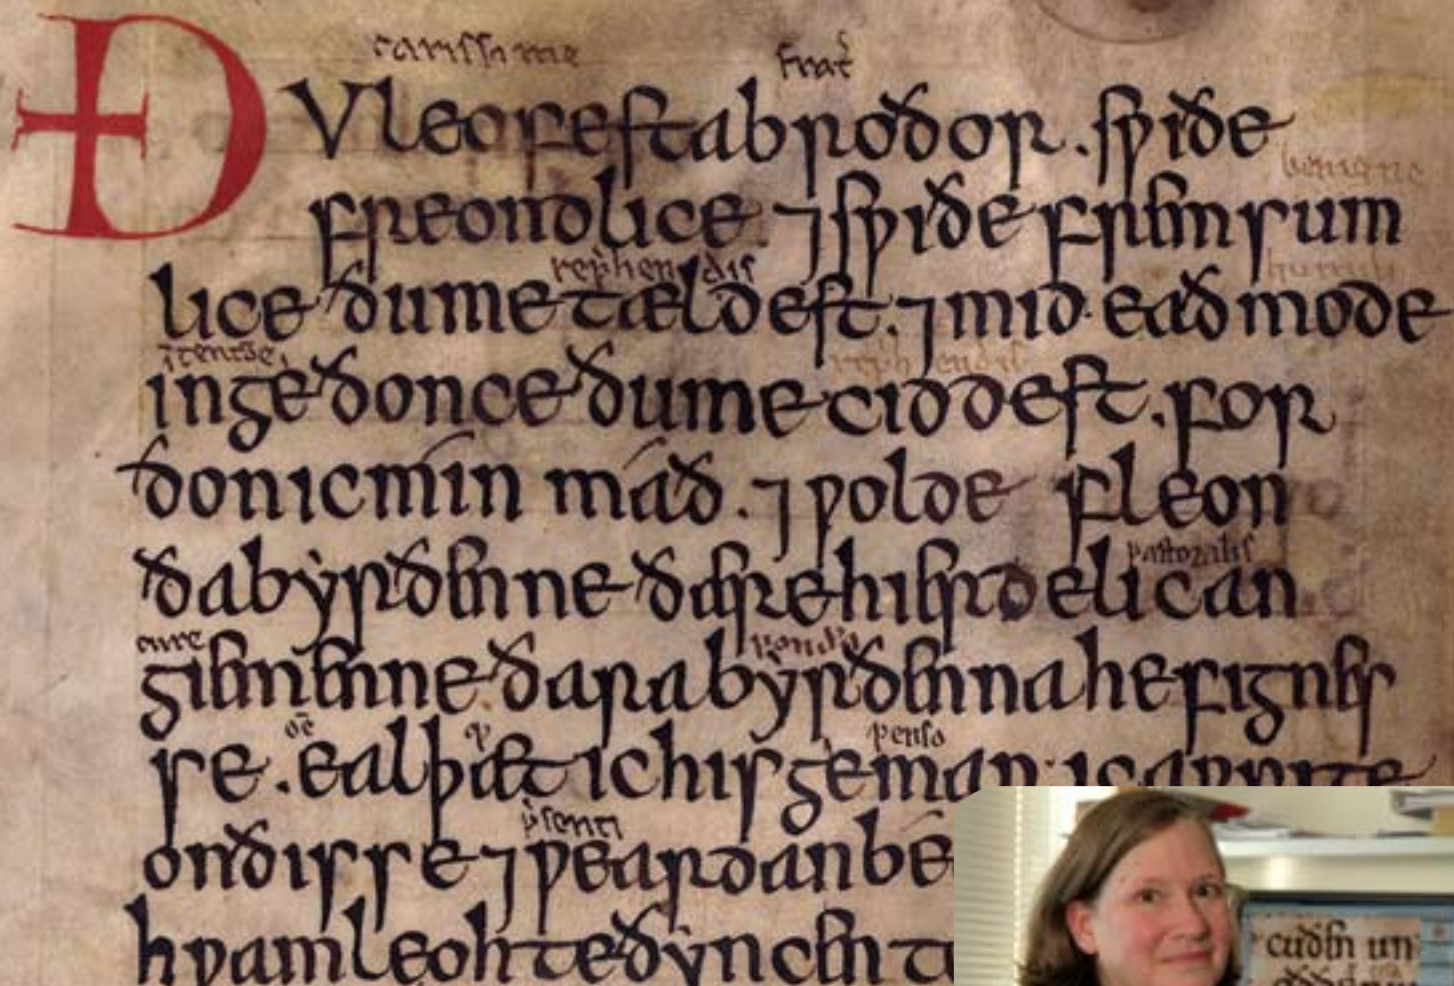 carissime frat̄
ÐV leofesta broðor . sƿiðe
benigne
freondlice . ⁊ sƿiðe fremsum
rep̄hendis humili
lice ðu me tældest . ⁊ mid eaðmode
inge ðonce ðu me ciddest . for
ðon ic mín máð . ⁊ ƿolde fleon
pastoralis
ða bẏrðenne ðære hierdelican
cure pond
giemenne ðara bẏrðenna hefignes
penso
se . eal þæt ic his geman . ic aƿrite
p̄senti
on ðisse ⁊ƿeardan bé
hƿam leohte ðẏncen t
cuðen un